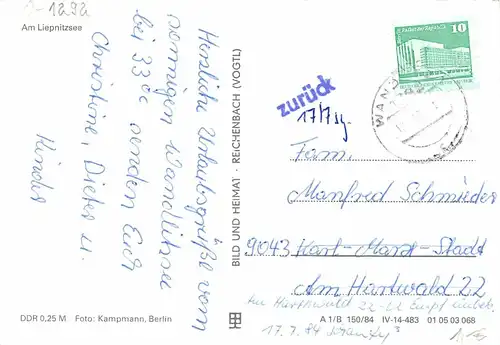 1292
Am Liepnitzsee
Herzliche Urlaubsgrüße vom
sonnigen Wandlitzsee
bei 33°C senden Euch
Christine, Dieter u.
Kinder
BILD UND HEIMAT · REICHENBACH (VOGTL)
10
WAND
zurück
17/7
Fam.
Manfred Schmieder
9043 Karl-Marx-Stadt
Am Hartwald 22
Am Harthwald 22
17.7.84
DDR 0,25 M Foto: Kampmann, Berlin
A 1/B 150/84 IV-14-483 01 05 03 068